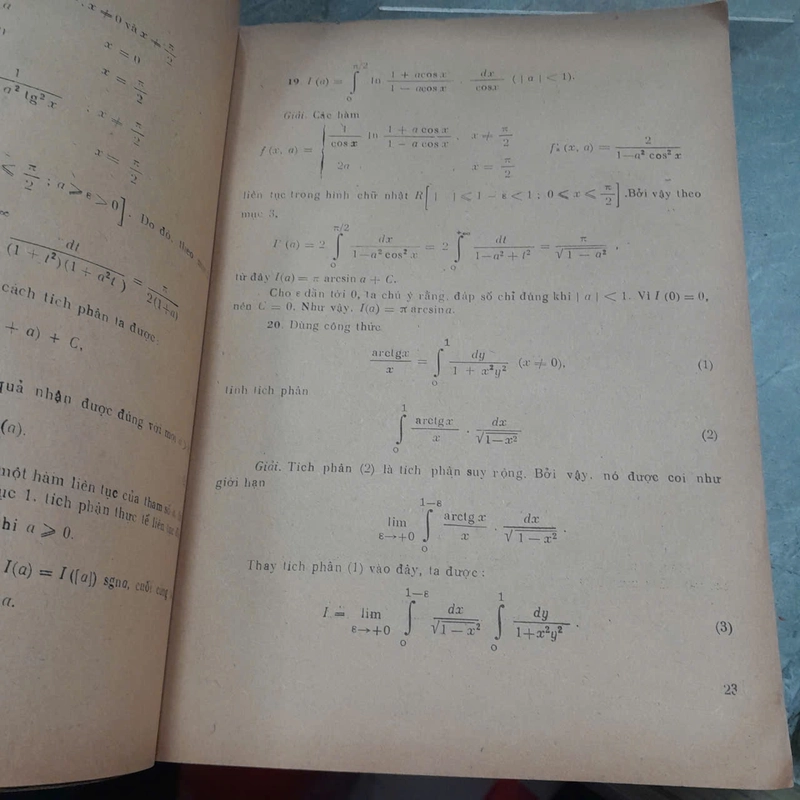 x ≠ 0 và x ≠ π/2
x = 0
x = π/2
1
a² tg² x
, x ≠ π/2
x = π/2
≤ π/2 ; a ≥ ε > 0]. Do đó,
dt / (1 + t²)(1 + a²t²) = π / 2(1+a)
cách tích phân ta được:
+ a) + C,
quả nhận được đúng với mọi
(a).
một hàm liên tục của tham số a,
ục 1, tích phân thực tế liên tục
hi a ⩾ 0.
I(a) = I(|a|) sgna, cuối cùng
a.
19. I (a) = ∫₀^{π/2} ln (1 + acos x)/(1 − acos x) . dx/cosx (| a | < 1).
Giải. Các hàm
f (x, a) = { 1/cos x ln (1 + a cos x)/(1 − a cos x) , x ≠ π/2
2a , x = π/2
f'ₐ (x, a) = 2/(1−a² cos² x)
liên tục trong hình chữ nhật R[ | | ⩽ 1 − ε < 1 ; 0 ⩽ x ⩽ π/2 ] .Bởi vậy theo
mục 3,
I' (a) = 2 ∫₀^{π/2} dx/(1−a² cos² x) = 2 ∫₀^{+∞} dt/(1−a² + t²) = π/√(1 − a²) ,
từ đây I(a) = π arcsin a + C.
Cho ε dần tới 0, ta chú ý rằng, đáp số chỉ đúng khi | a | < 1. Vì I (0) = 0,
nên C = 0. Như vậy, I(a) = π arcsina.
20. Dùng công thức
arctgx/x = ∫₀¹ dy/(1 + x²y²) (x ≠ 0), (1)
tính tích phân
∫₀¹ arctgx/x . dx/√(1−x²) (2)
Giải. Tích phân (2) là tích phân suy rộng. Bởi vậy, nó được coi như
giới hạn
lim_{ε→+0} ∫₀^{1−ε} arctg x/x . dx/√(1 − x²) .
Thay tích phân (1) vào đây, ta được :
I = lim_{ε→+0} ∫₀^{1−ε} dx/√(1 − x²) ∫₀¹ dy/(1+x²y²) . (3)
23